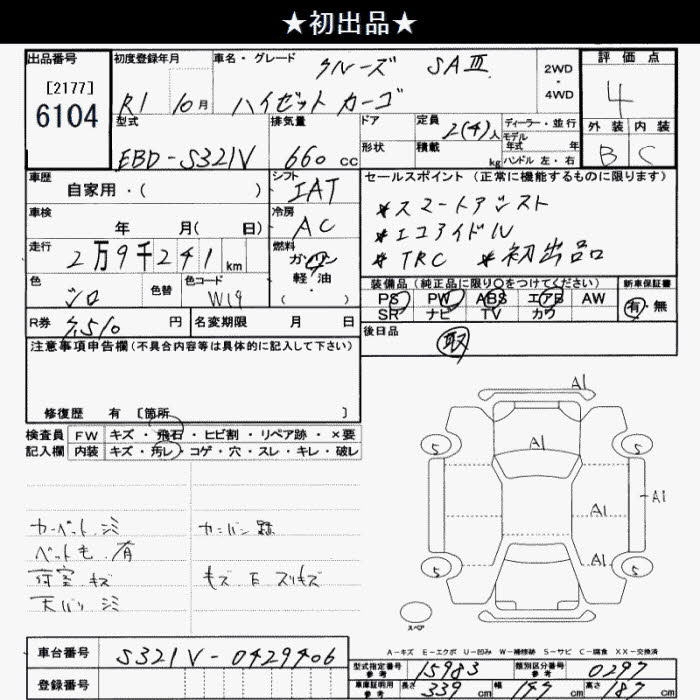 ★初出品★
出品番号
[2177]
6104
初度登録年月
R1 10月
車名・グレード
クルーズ SAⅢ
ハイゼットカーゴ
2WD
・
4WD
評価点
4
外装 内装
B C
型式
EBD-S321V
排気量
660 cc
ドア
形状
定員
2(4)人
積載
kg
ディーラー・並行
モデル年式 年
ハンドル 左・右
車歴
自家用・( )
シフト
IAT
車検
年 月( 日)
冷房
AC
走行
2万9千241km
燃料
ガソリン
・
軽・油
( ・ )
色
シロ
色替
色コード
W19
R券
円
名変期限 月 日
セールスポイント(正常に機能するものに限ります)
*スマートアシスト
*エコアイドル
*TRC *初出品
装備品(純正品に限り○をつけてください)
新車保証書
PS PW ABS エアB AW
SR ナビ TV カワ
有・無
後日品
取
注意事項申告欄(不具合内容等は具体的に記入して下さい)
修復歴 有 〔箇所 〕
検査員
記入欄
FW キズ・飛石・ヒビ割・リペア跡・×要
内装 キズ・汚レ・コゲ・穴・スレ・キレ・破レ
カーペットシミ
カンバン跡
ベットも.有
荷室キズ
キズ E スリキズ
天バリ シミ
A1
A1
5 5
A1
A1
A1
5 5
スペア
A-キズ E-エクボ U-凹み W-補修跡 S-サビ C-腐食 XX-交換済
車台番号
S321V-0429406
登録番号
型式指定番号
参考
15983
類別区分番号
参考
0297
車庫証明用
参考
長さ 339cm
幅 147cm
高さ 187cm